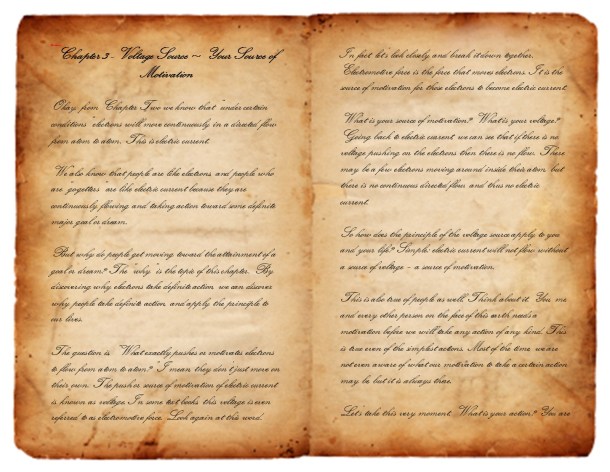 Chapter 3 - Voltage Source ~ Your Source of
Motivation
Okay, from Chapter Two we know that "under certain
conditions" electrons will move continuously in a directed flow
from atom to atom. This is electric current.
We also know that people are like electrons, and people who
are "gogetters" are like electric current because they are
continuously flowing and taking action toward some definite
major goal or dream.
But why do people get moving toward the attainment of a
goal or dream? The "why" is the topic of this chapter. By
discovering why electrons take definite action, we can discover
why people take definite action, and apply the principle to
our lives.
The question is, "What exactly pushes or motivates electrons
to flow from atom to atom?" I mean, they don't just move on
their own. The push or source of motivation of electric current
is known as voltage. In some text books, this voltage is even
referred to as electromotive force. Look again at this word.
In fact, let's look closely and break it down together.
Electromotive force is the force that moves electrons. It is the
source of motivation for those electrons to become electric current.
What is your source of motivation? What is your voltage?
Going back to electric current, we can see that if there is no
voltage pushing on the electrons then there is no flow. There
may be a few electrons moving around inside their atom, but
there is no continuous directed flow and thus no electric
current.
So how does the principle of the voltage source apply to you
and your life? Simple: electric current will not flow without
a source of voltage - a source of motivation.
This is also true of people as well. Think about it. You, me,
and every other person on the face of this earth needs a
motivation before we will take any action of any kind. This
is true even of the simplest actions. Most of the time, we are
not even aware of what our motivation to take a certain action
may be, but it is always true.
Let's take this very moment. What is your action? You are